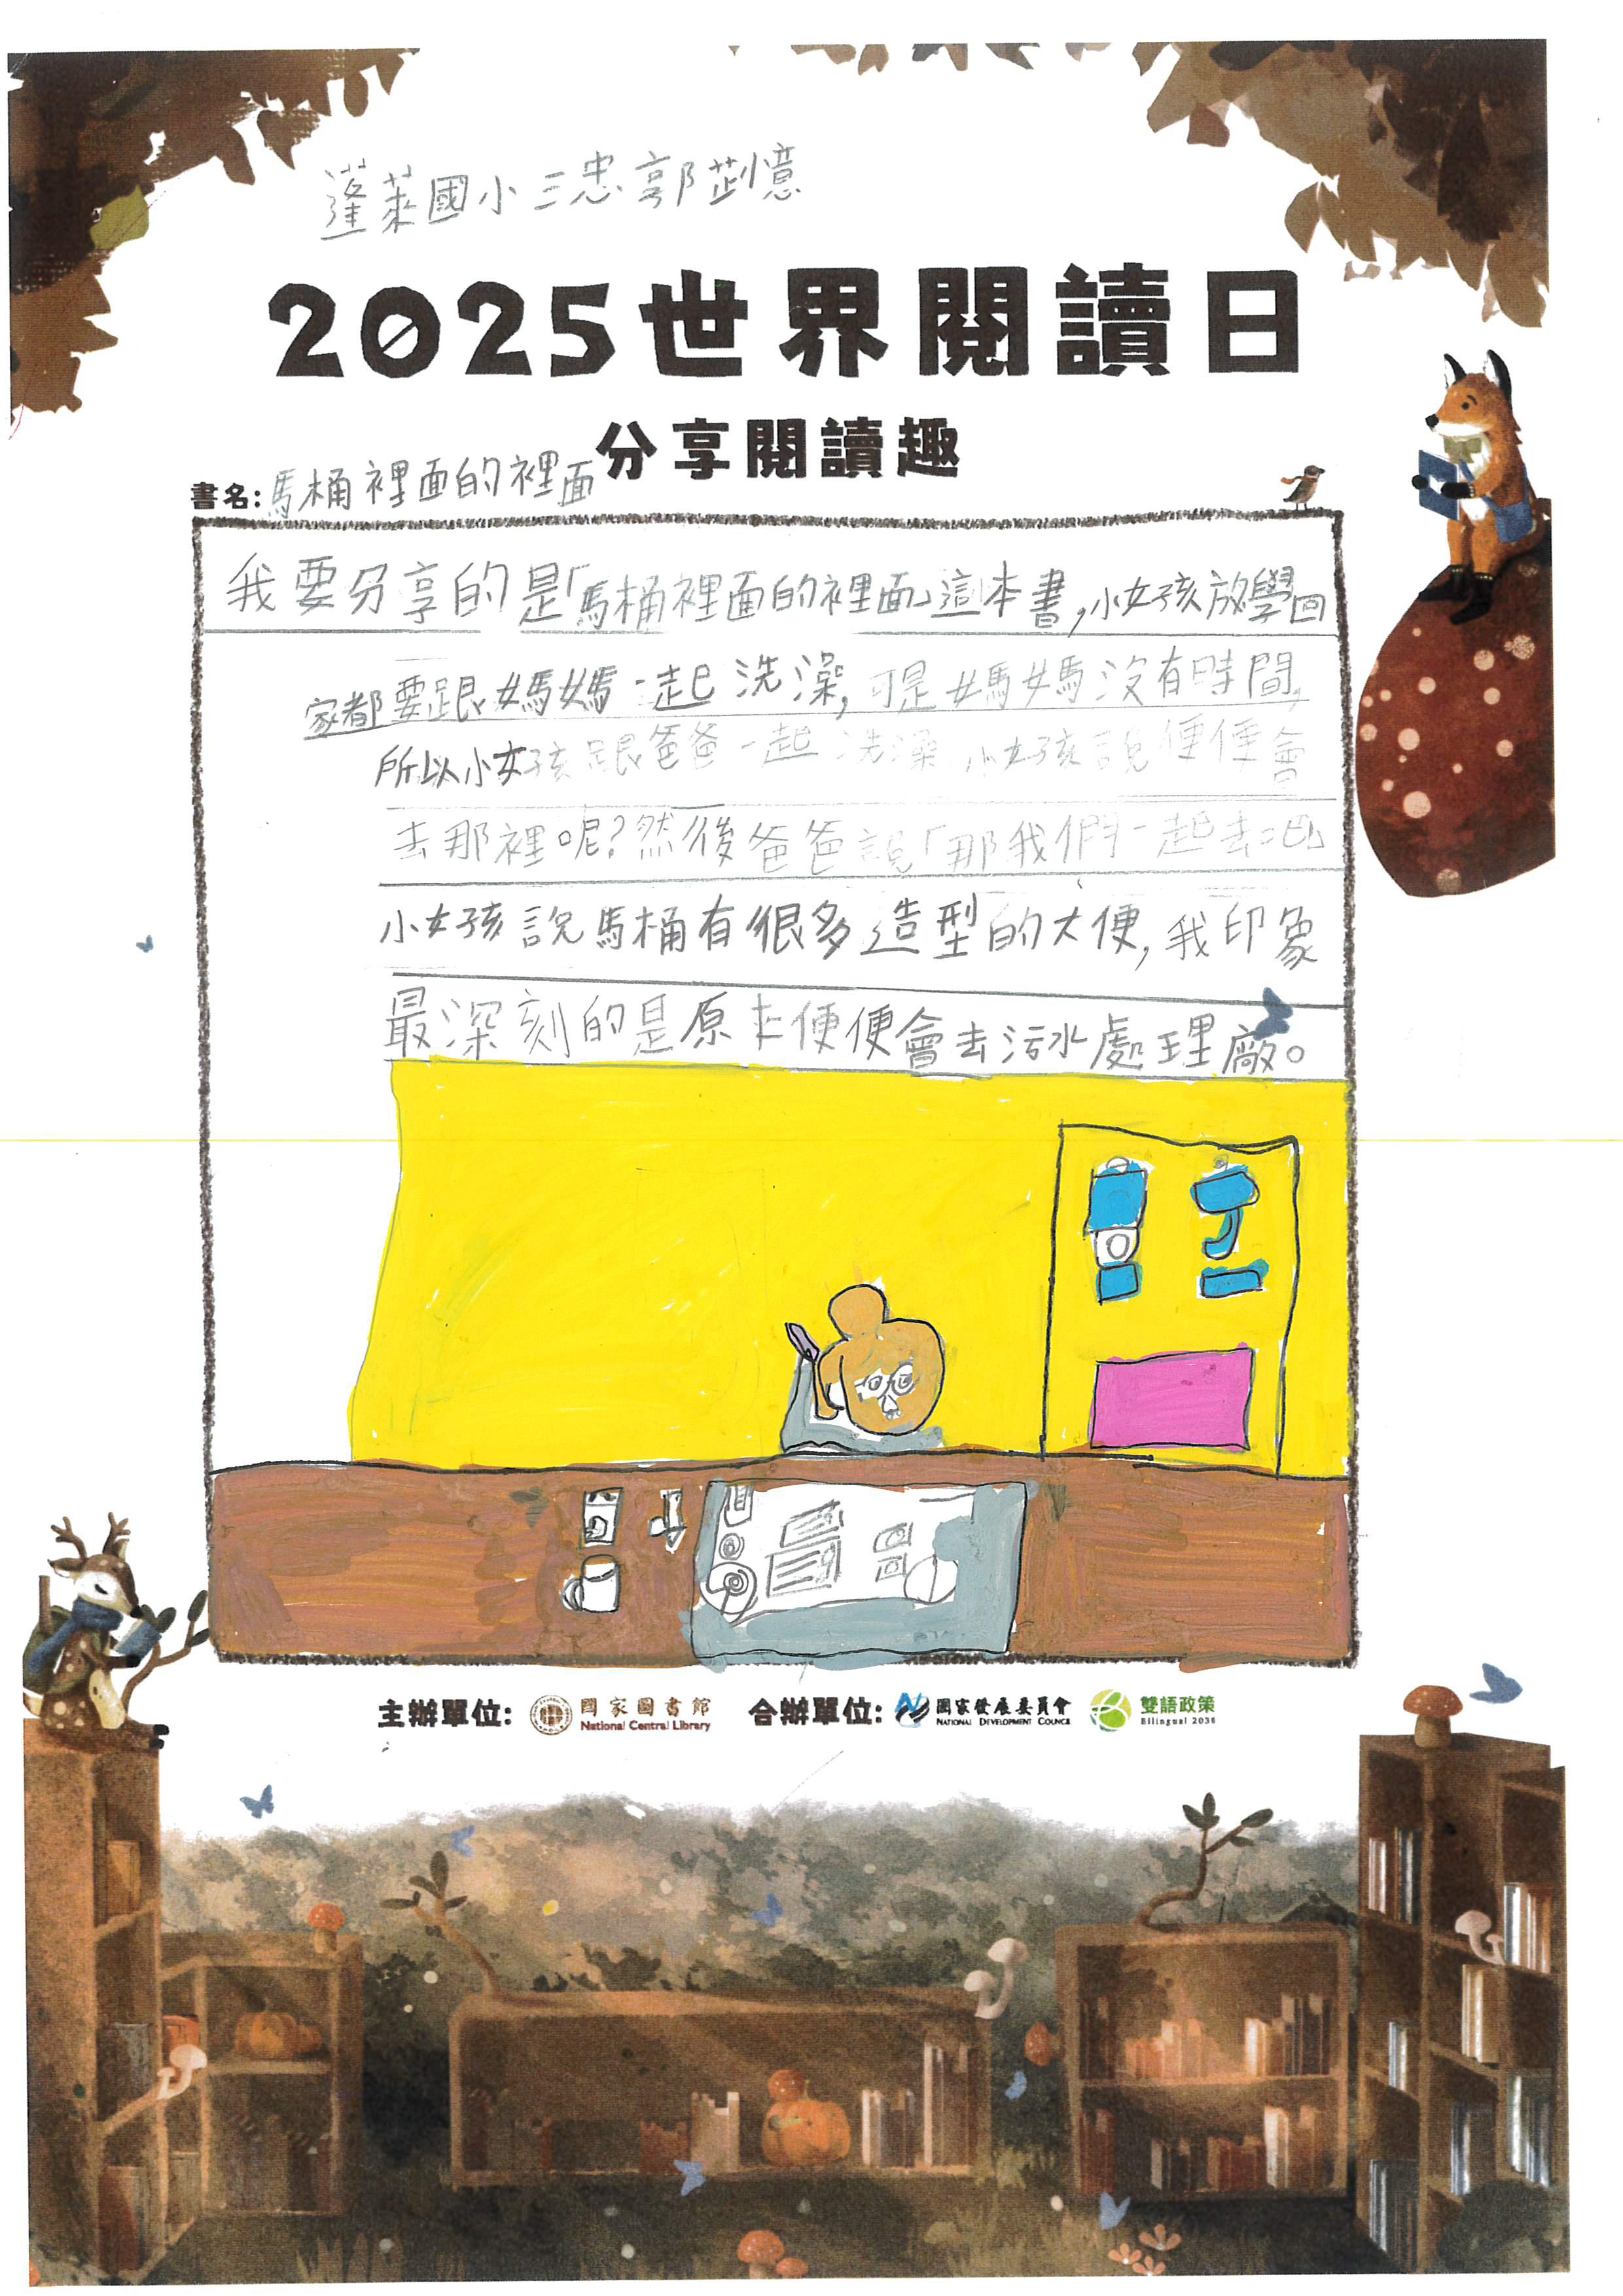 蓬萊國小三忠郭芷憶
2025世界閱讀日
分享閱讀趣
書名:馬桶裡面的裡面
我要分享的是「馬桶裡面的裡面」這本書,小女孩放學回
家都要跟媽媽一起洗澡,可是媽媽沒有時間,
所以小女孩跟爸爸一起洗澡,小女孩說便便會
去那裡呢?然後爸爸說「那我們一起去吧」
小女孩說馬桶有很多造型的大便,我印象
最深刻的是原來便便會去污水處理廠。
主辦單位: 國家圖書館 National Central Library 合辦單位: 國家發展委員會 NATIONAL DEVELOPMENT COUNCIL 雙語政策 Bilingual 2030